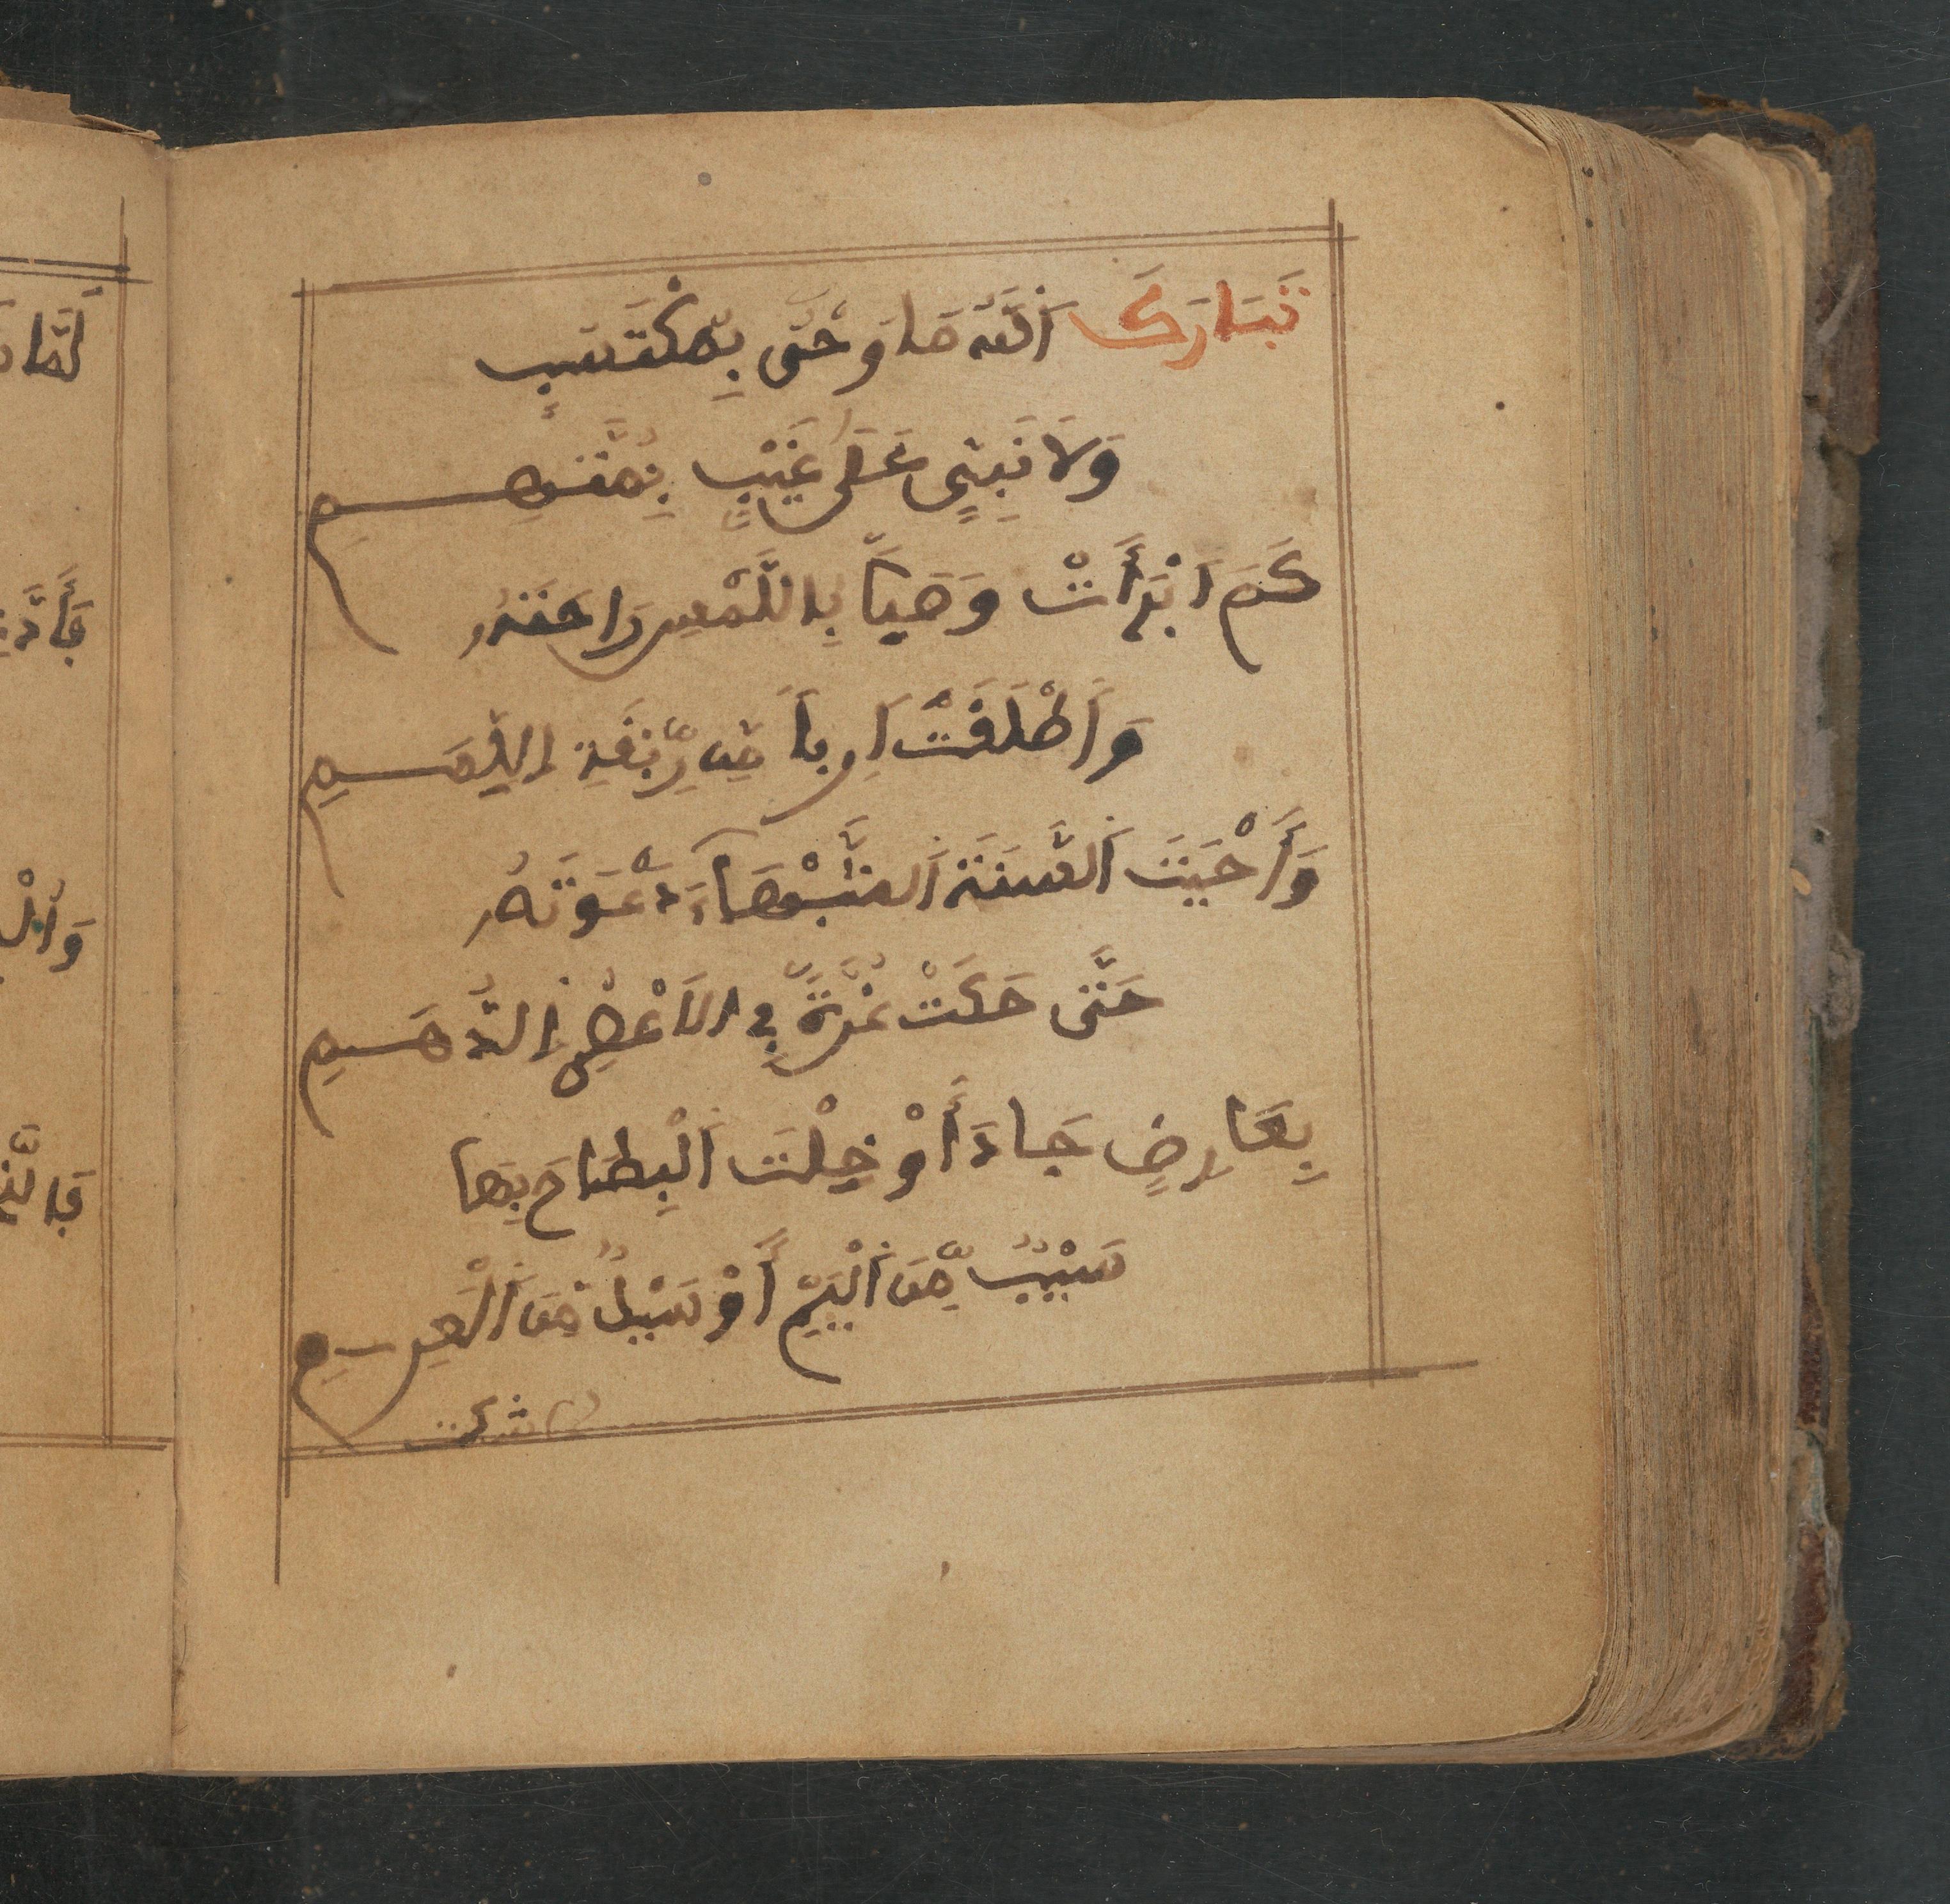 تَبَارَكَ اَللَّهُ مَا وَحْىٌ بِمُكْتَسَبٍ
وَلَا نَبِيٌّ عَلَى غَيْبٍ بِمُتَّهَمِ
كَمَ اَبْرَأَتْ وَصِباً بِاللَّمْسِ رَاحَتُهُ
وَأَطْلَقَتْ اَرِباً مِن رِّبْقَةِ اللَّمَمِ
وَأَحْيَتِ اَلسَّنَةَ اَلشَّهْبَآءَ دَعْوَتُهُ
حَتَّى حَكَتْ غُرَّةً فِي الَاعْصُرِ الدُّهُمِ
بِعَارِضٍ جَادَ أَوْ خِلْتَ اَلْبِطَاحَ بِهَا
سَيْبٌ مِّنَ اَلْيَمِّ أَوْ سَيْلٌ مِّنَ اَلْعَرِمِ